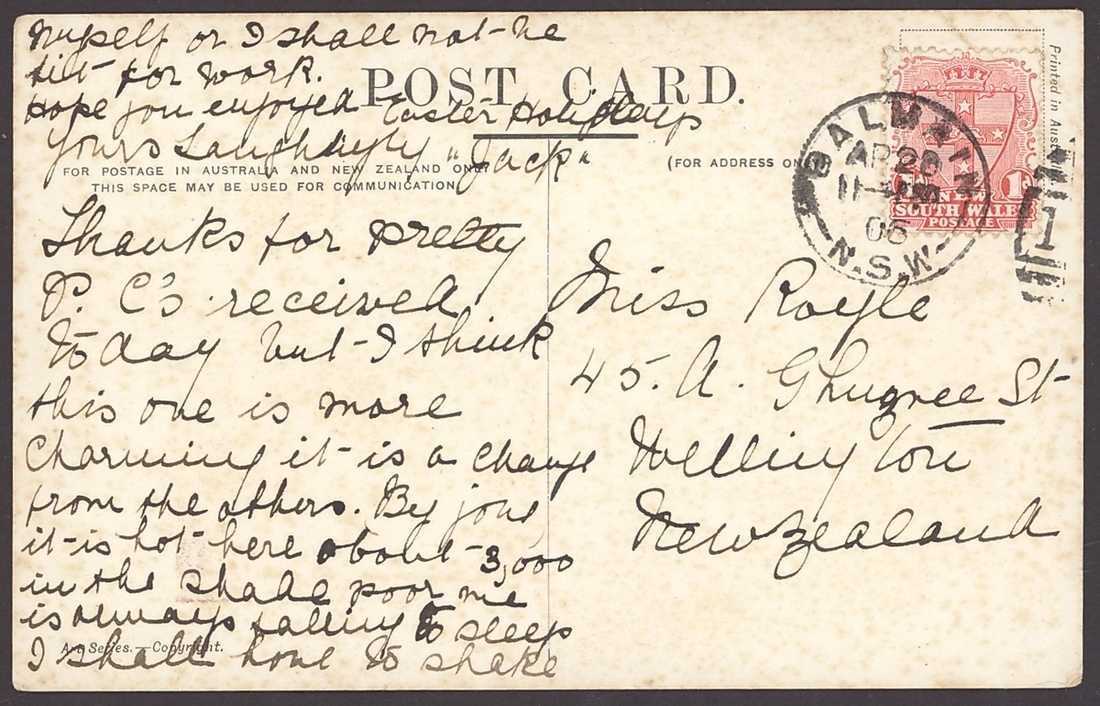 POST CARD.
FOR POSTAGE IN AUSTRALIA AND NEW ZEALAND ONLY
THIS SPACE MAY BE USED FOR COMMUNICATION.
(FOR ADDRESS ONLY)
Printed in Austral
Thanks for pretty
P. C's received
To day but I think
this one is more
charming it is a change
from the others. By jove
it is hot here about 3,000
in the shade poor me
is always falling to sleep
I shall have to shake
myself or I shall not be
fit for work.
Hope you enjoyed Easter Holidays
Yours Laughingly "Jack"
Miss Royle
45. A. Ghuznee St
Wellington
New Zealand
BALMAIN
AP 20
11
06
N.S.W
1d 1d
NEW
SOUTH WALES
POSTAGE
1
Art Series.—Copyright.